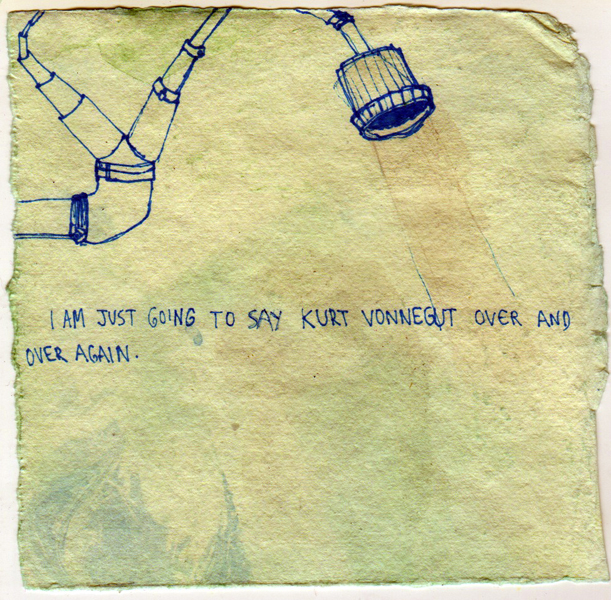 I AM JUST GOING TO SAY KURT VONNEGUT OVER AND
OVER AGAIN.